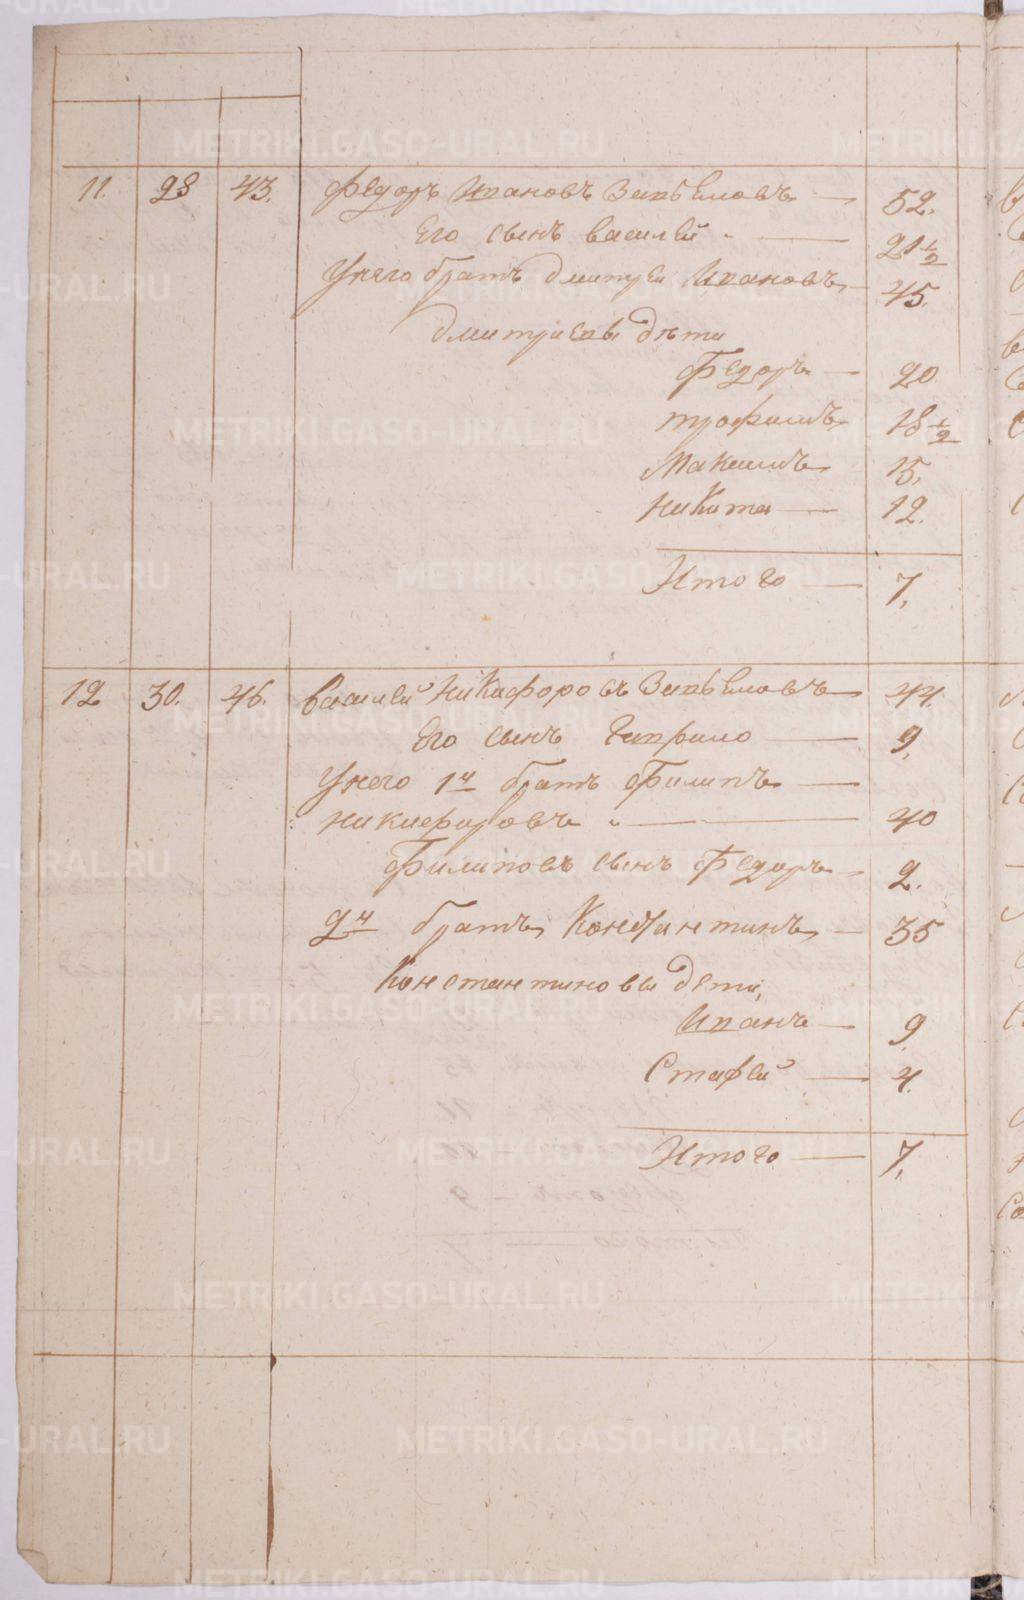 11. 28 43. Федоръ Ивановъ 52.
Его сынъ василей 21 1/2
У него братъ Дмитрей Ивановъ 45.
Дмитриевы дети
Федоръ 20
трофимъ 18 1/2
Максимъ 15.
Никита 12.
Итого 7.
12 30. 46. василей Никифоровъ 44.
Его сынъ Гаврило 9.
У него 1й братъ Филипъ
Никифоровъ 40
Филиповъ сынъ Федоръ 2.
2й братъ Константинъ 35
Константиновы дети,
Иванъ 9
Стафей 4
Итого 7.
METRIKI.GASO-URAL.RU